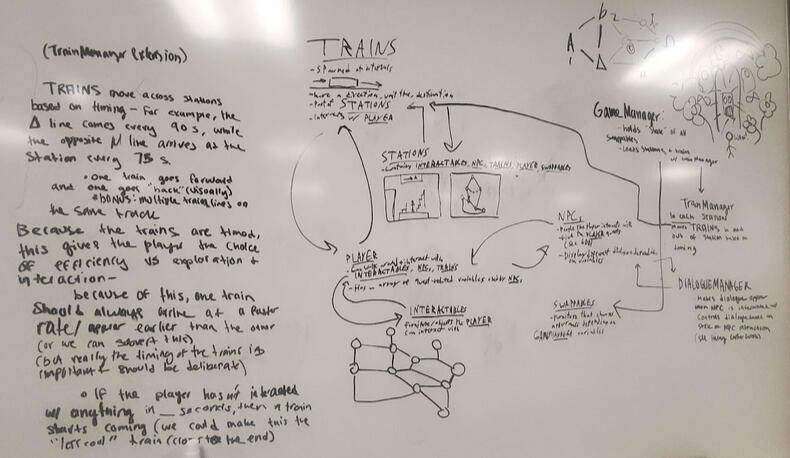 (TrainManager Extension)
TRAINS move across stations
based on timing – For example, the
Δ line comes every 90s, while
the opposite line arrives at the
Station every 75 s.
• One train goes forward
and one goes "back" (visually)
* BONUS: multiple train lines on
the same track
Because the trains are timed,
this gives the player the choice
OF efficiency VS exploration +
interaction –
because of this, one train
Should always arrive at a faster
rate/appear earlier than the other
(or we can subvert this)
(but really the timing of the trains is
important + should be deliberate)
• If the player has n't interacted
w/ anything in __ seconds, then a train
starts coming (we could make this the
"less cool" train (closer to the end)
TRAINS
- Spawned at intervals
- have a direction, destination
- Part of STATIONS
- Interacts w/ PLAYER
STATIONS
- Contains INTERACTABLES, NPCs, TRAINS, PLAYER, SWAPPABLES
PLAYER
- Can walk around + interact with
INTERACTABLES, NPCs, TRAINS
- Has an array of quest-related variables under NPCs
INTERACTABLES
Furniture/objects the PLAYER
can interact with
NPCs
- People the player interacts with
- PLAYER
- Display different dialogue
on variables
SWAPPABLES
- Furniture that changes
depending on
variables
A
b
Δ
Game Manager:
- holds state of all
swappables
- Loads stations + trains
w/ Train Manager
Train Manager
in each station
Moves TRAINS in and
out of station based on
timing
DIALOGUE MANAGER
- Makes dialogue appear
when NPC is interacted w/
Controls dialogue based on
state of NPC interaction